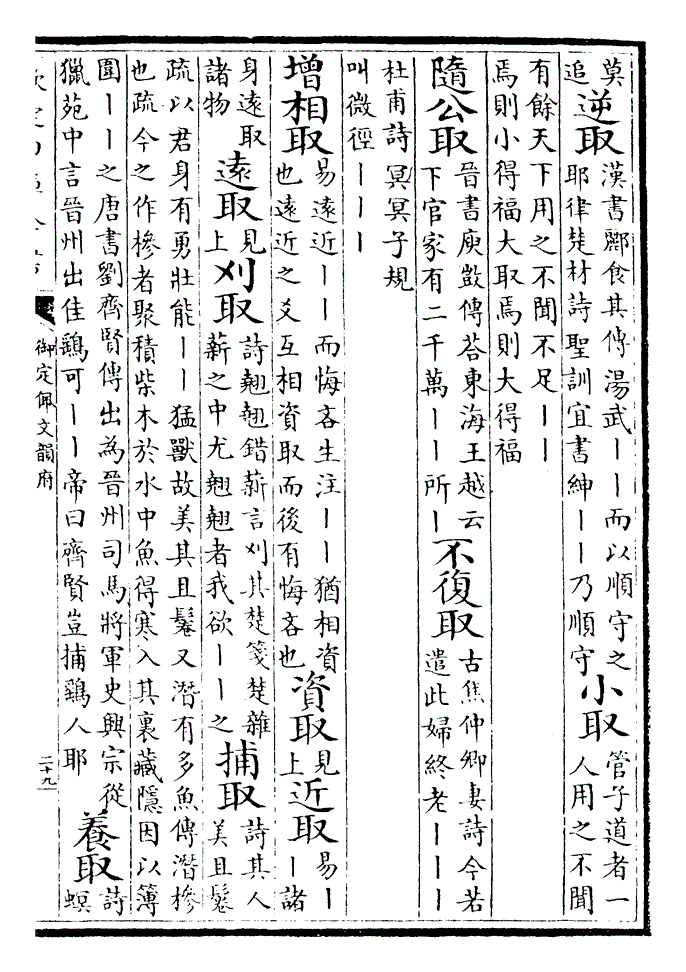 莫追逆取漢書酈食其傳湯武丨丨而以順守之耶律楚材詩聖訓宜書紳丨丨乃順守小取管子道者一人用之不聞
有餘天下用之不聞不足丨丨焉則小得福大取焉則大得福
隨公取晉書庾敳傳荅東海王越云下官家有二千萬丨丨所丨不復取古焦仲卿妻詩今若遣此婦終老丨丨丨
杜甫詩冥冥子規叫微徑丨丨丨
增相取易遠近丨丨而悔吝生注丨丨猶相資也遠近之爻互相資取而後有悔吝也資取見上近取易丨丨諸
身遠取諸物遠取見上刈取詩翹翹錯薪言刈其楚箋楚雜薪之中尤翹翹者我欲丨丨之捕取詩其人美且鬈
疏以君身有勇壯能丨丨猛獸故美其且鬈又潛有多魚傳潛槮也疏今之作槮者聚積柴木於水中魚得寒入其裏藏隱因以簿
圍丨丨之唐書劉齊賢傳出為晉州司馬將軍史興宗從獵苑中言晉州出佳鷂可丨丨帝曰齊賢豈捕鷂人耶養取詩螟
御定佩文韻府
二十九